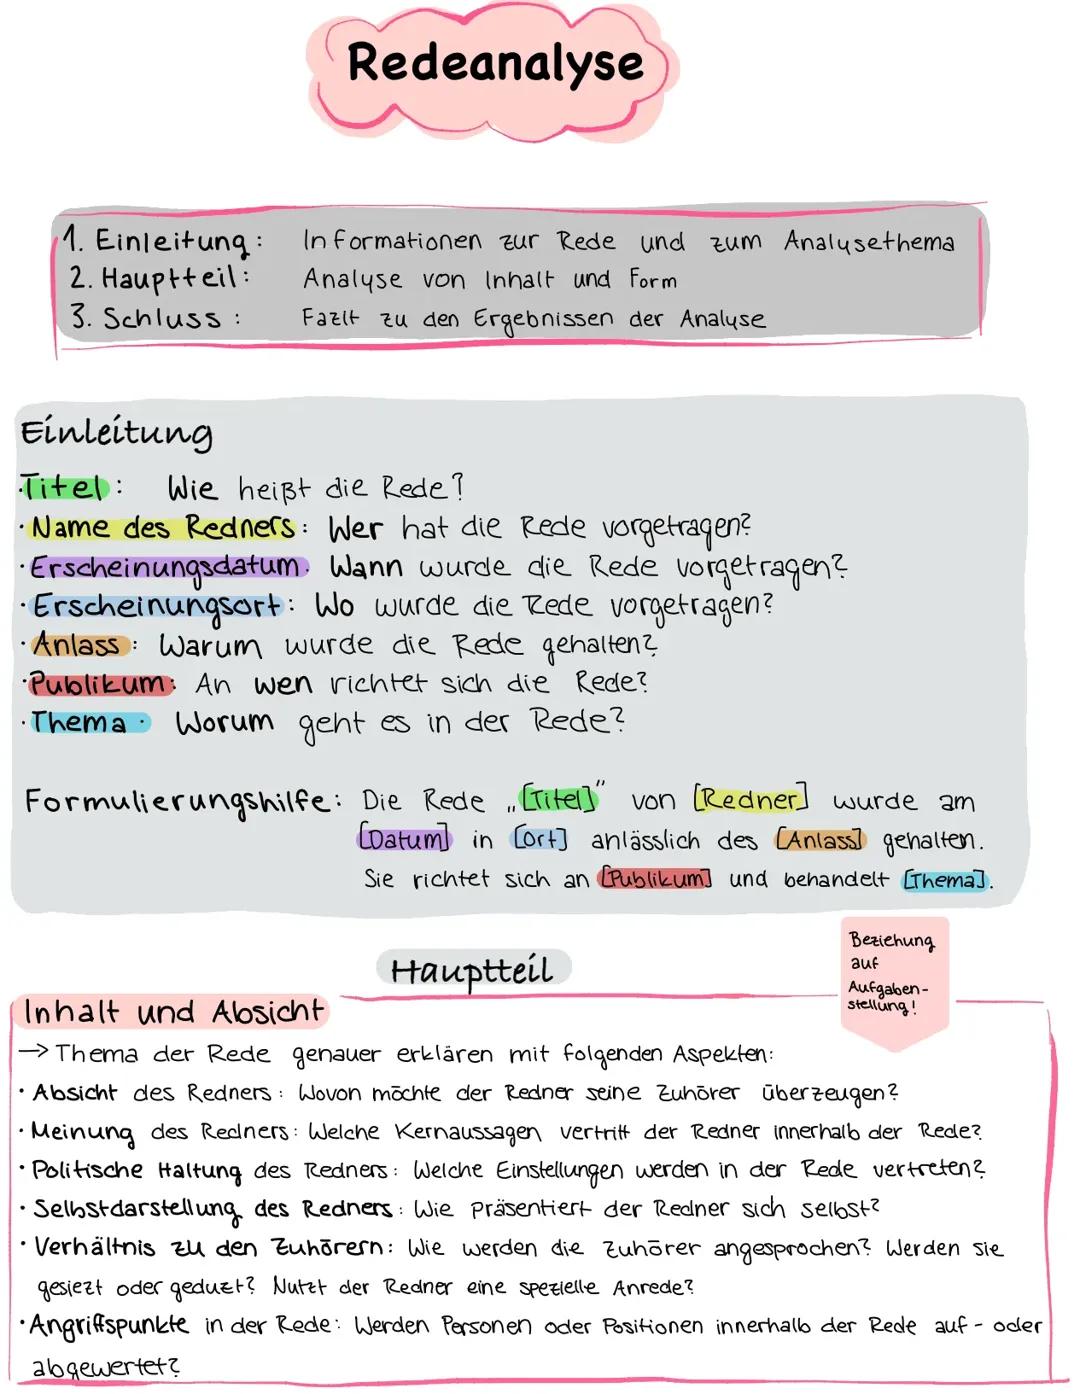 Redeanalyse
1. Einleitung: Informationen zur Rede und zum Analysethema
2. Hauptteil: Analyse von Inhalt und Form
3. Schluss: Fazit zu den Ergebnissen der Analyse
Einleitung
·Titel: Wie heißt die Rede?
·Name des Redners: Wer hat die Rede vorgetragen?
·Erscheinungsdatum: Wann wurde die Rede vorgetragen?
·Erscheinungsort: Wo wurde die Rede vorgetragen?
·Anlass: Warum wurde die Rede gehalten?
·Publikum: An wen richtet sich die Rede?
·Thema: Worum geht es in der Rede?
Formulierungshilfe: Die Rede „[Titel]“ von [Redner] wurde am
[Datum] in [Ort] anlässlich des [Anlass] gehalten.
Sie richtet sich an [Publikum] und behandelt [Thema].
Beziehung
auf
Aufgaben-
stellung!
Hauptteil
Inhalt und Absicht
→ Thema der Rede genauer erklären mit folgenden Aspekten:
· Absicht des Redners: Wovon möchte der Redner seine Zuhörer überzeugen?
· Meinung des Redners: Welche Kernaussagen vertritt der Redner innerhalb der Rede?
· Politische Haltung des Redners: Welche Einstellungen werden in der Rede vertreten?
· Selbstdarstellung des Redners: Wie präsentiert der Redner sich selbst?
· Verhältnis zu den Zuhörern: Wie werden die Zuhörer angesprochen? Werden sie
gesiezt oder geduzt? Nutzt der Redner eine spezielle Anrede?
· Angriffspunkte in der Rede: Werden Personen oder Positionen innerhalb der Rede auf- oder
abgewertet?